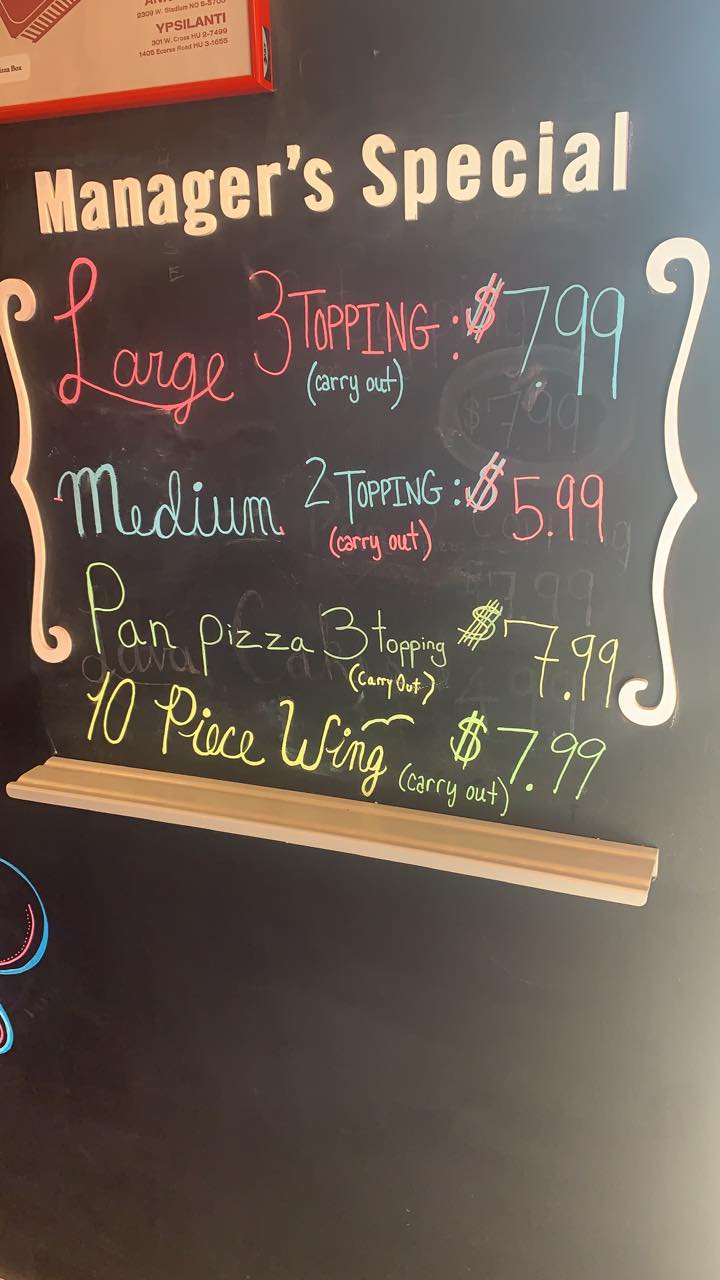 2309 W. Stadium NO 8-5705
YPSILANTI
301 W. Cross HU 2-7499
1405 Ecorse Road HU 3-1655
Manager's Special
Large 3 TOPPING : $7.99
(carry out)
Medium 2 TOPPING : $5.99
(carry out)
Pan pizza 3 topping $7.99
(Carry Out)
10 Piece Wing $7.99
(carry out)